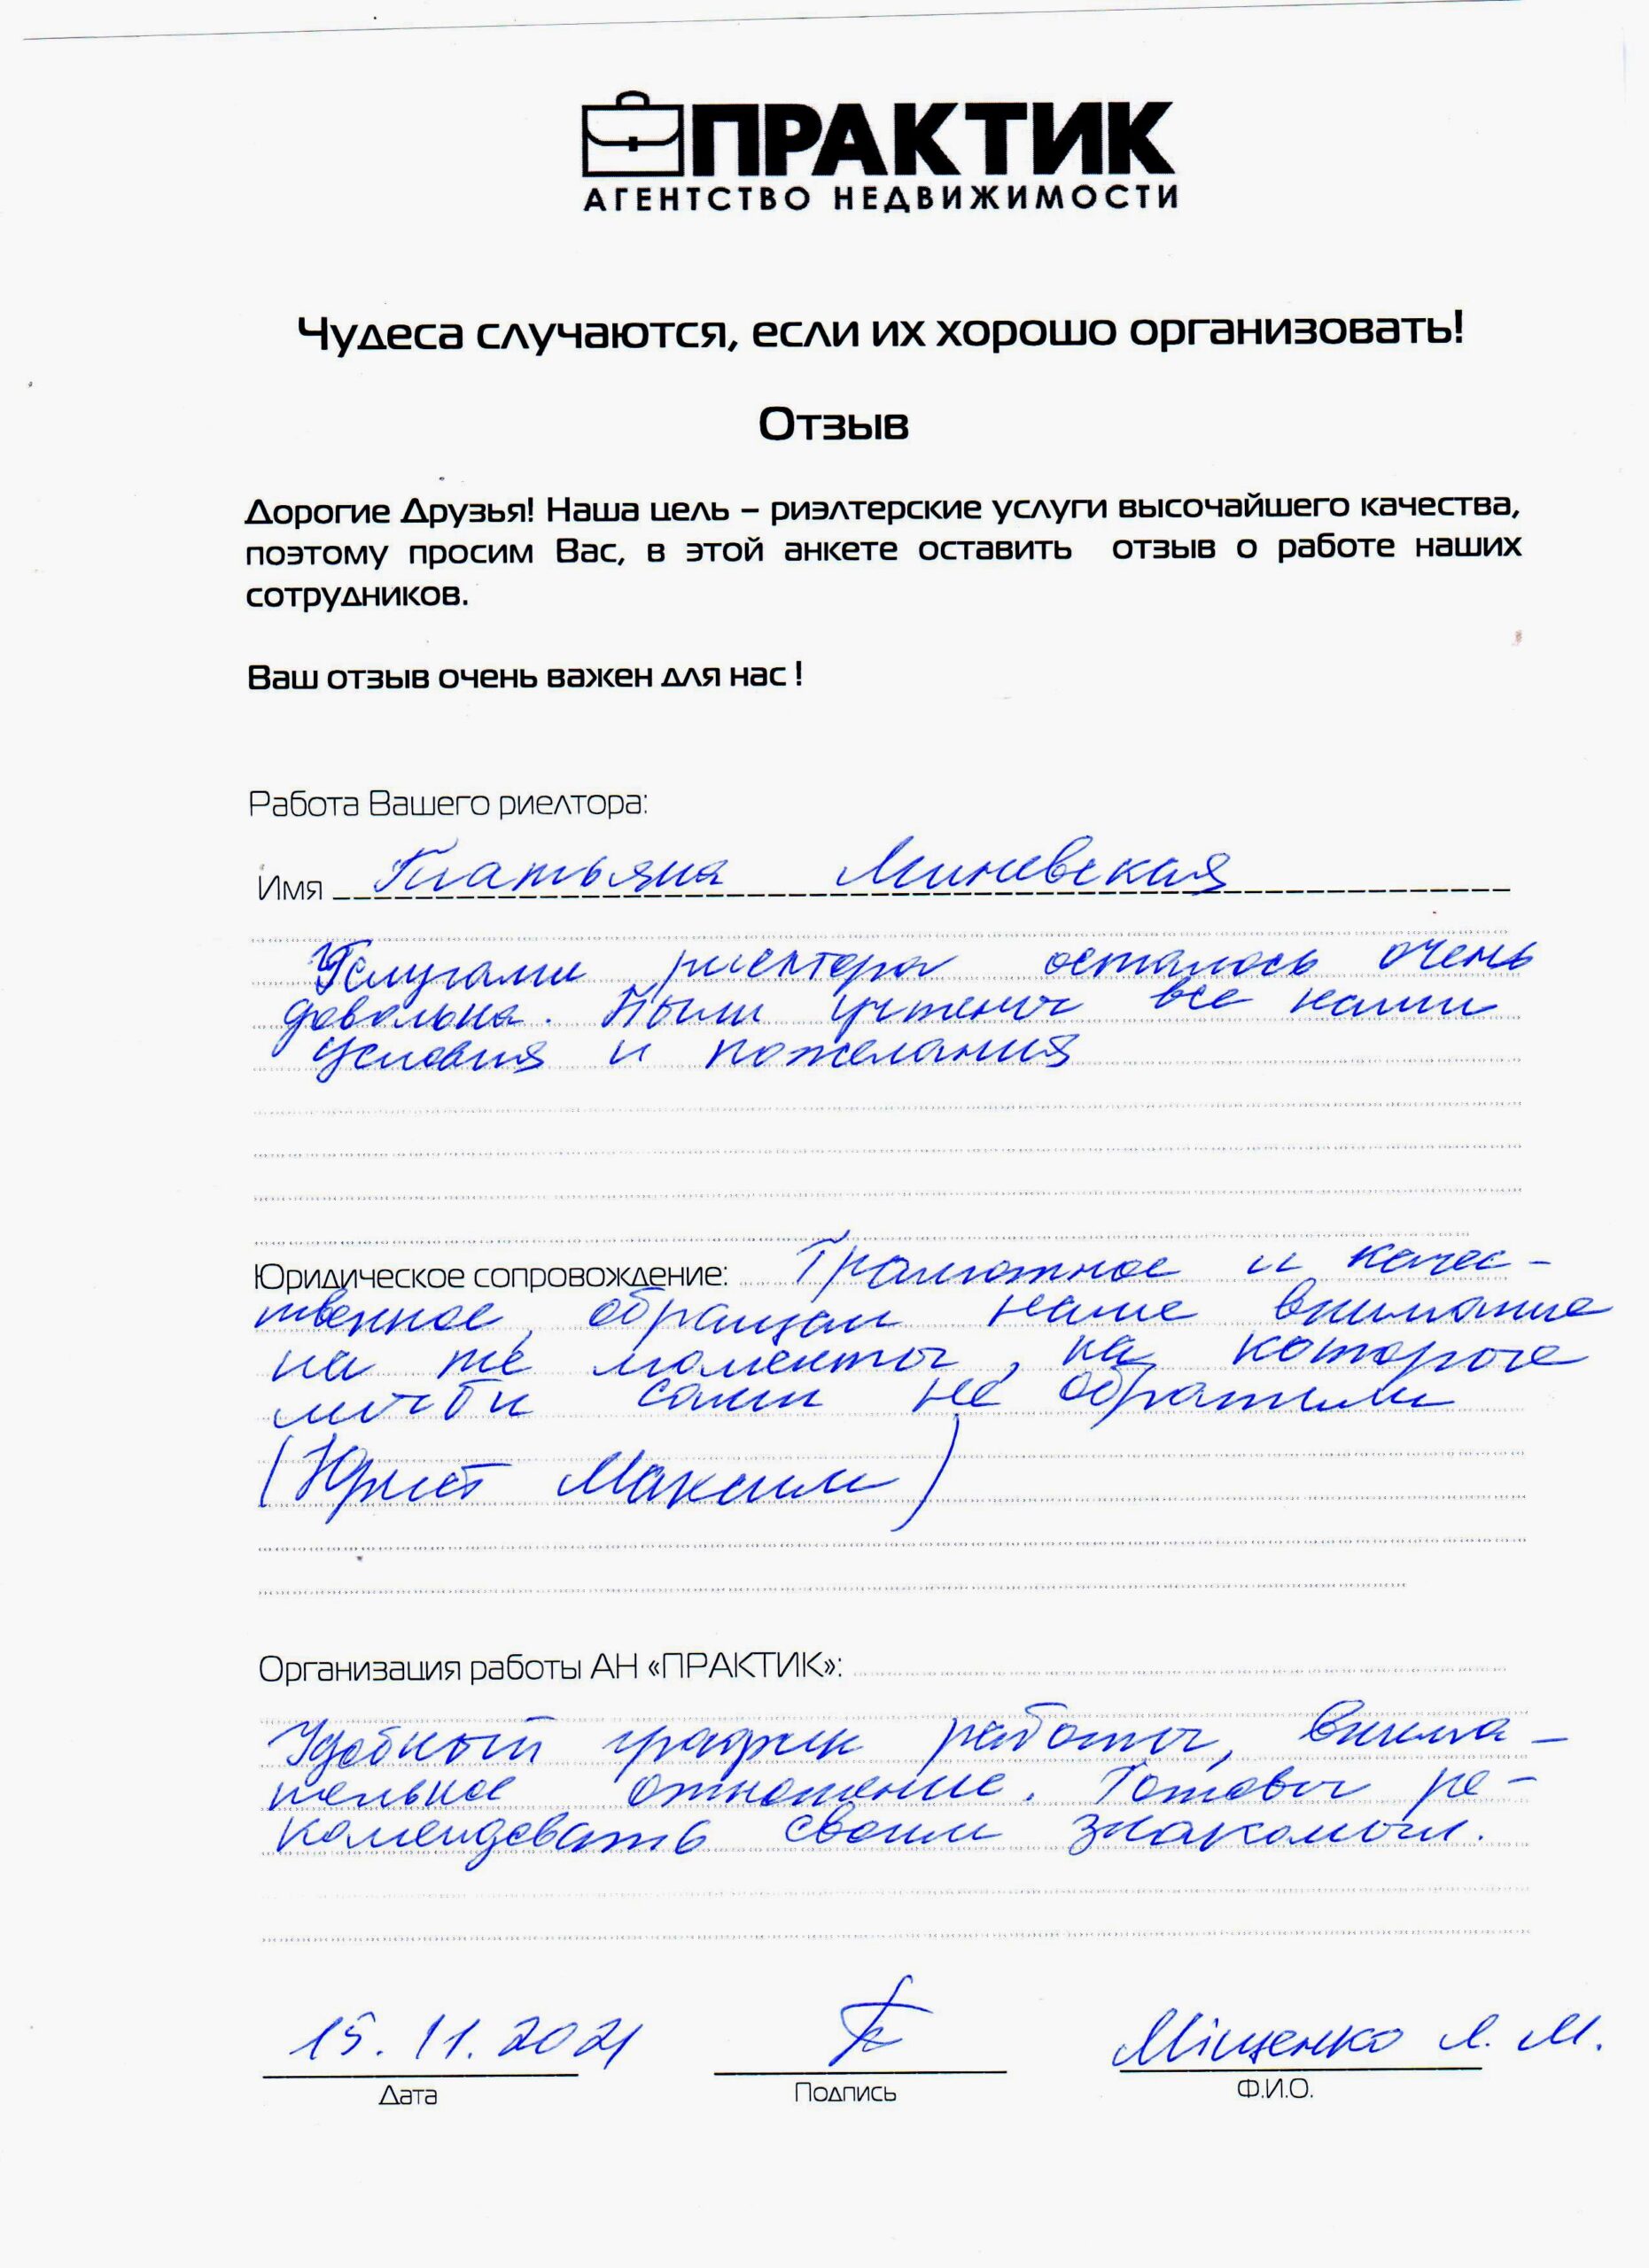 ПРАКТИК
АГЕНТСТВО НЕДВИЖИМОСТИ
Чудеса случаются, если их хорошо организовать!
Отзыв
Дорогие Друзья! Наша цель – риэлтерские услуги высочайшего качества,
поэтому просим Вас, в этой анкете оставить отзыв о работе наших
сотрудников.
Ваш отзыв очень важен для нас !
Работа Вашего риелтора:
Имя Татьяна Миневская
Услугами риелтора осталось очень
довольна. Были учтены все наши
условия и пожелания
Юридическое сопровождение: Грамотное и качес-
твенное, обращал наше внимание
на те моменты, на которые
мы бы сами не обратили
(Юрист Максим)
Организация работы АН «ПРАКТИК»:
Удобный график работы, внима-
тельное отношение. Готовы ре-
комендовать своим знакомым.
15.11.2021 Міщенко Л. М.
Дата Подпись Ф.И.О.